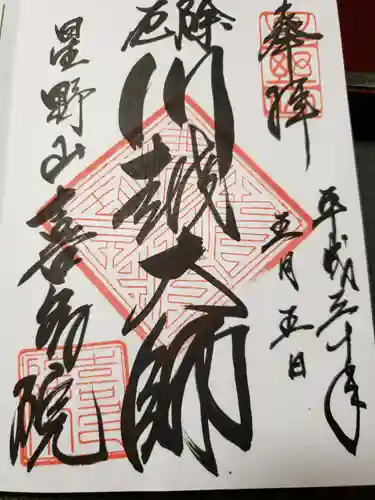 奉拝
平成三十年
五月五日
厄除
川越大師
星野山
喜多院